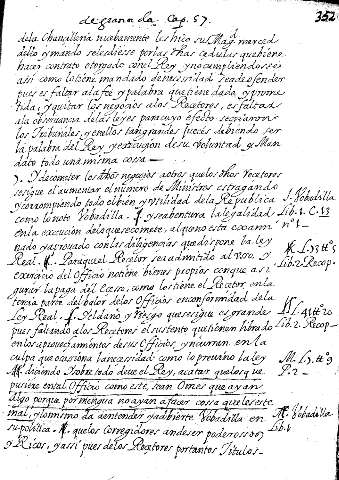 de granada Cap. 57.
352
dela Chanzilleria nuebamente les hiço su Mag.d merced
dello y mando se lesdiesse por las dhas cedulas que tiene
hacer contrato otorgado con el Rey, y no cumpliendosse
assi como lo tiene mandado de necessidad sea de ofender
pues es faltar ala fee y palabra que tiene dada, y prome
tida, y quitar los negocios alos Rectores, es faltar
ala observancia de las leyes para cuyo efecto se criaron
los Tribunales, y enellos tan grandes Jueces debiendo ser
la palabra del Rey y execuçion de su voluntad, y Man
dato todo una misma cossa
Y de cometer los dhos negocios a otros que los dhos Recetores
se sigue el aumentar el numero de Ministros estragando
y corrompiendo todo el bien y utilidad dela Republica
como lo noto Vobadilla. y se abentura la legalidad
en la execucion delo que se comete, al que no esta exami
nado y aprovado con las diligencias que dispone la ley
Real. Para que el Recetor sea admitido al uso, y
exercicio del Officio no tiene bienes propios con que assi
gurir la paga del Casso, como los tiene el Recetor en la
tercia parte del balor delos Officios en conformidad dela
Ley Real. el daño y riesgo que se sigue es grande
pues faltando alos Recetores el sustento que tienen librado
en los aprovechamientos de sus Officios, y incurran en la
culpa que ocasiona la necessidad como lo previno la ley
diciendo Isobre todo deue el Rey, acatar que los que
pusiere en tal Officio como este, sean Omes que ayan
Algo porque por mengua no ayan a facer cossa que les este
mal, y lo mismo da a entender y adbierte Vobadilla en
su politica que los corregidores an de ser poderossos
y Ricos, y assi pues delos Recetores por tantos Titulos
J. Vobadilla
Lib. 1. C. 13
n.o 1
L. 13 tt.o 3
Lib. 2. Recop.
L. 41 tt.o 20
Lib. 2. Recop.
L. 9 tt.o 9
P. 2
Vobadilla
Lib. 1